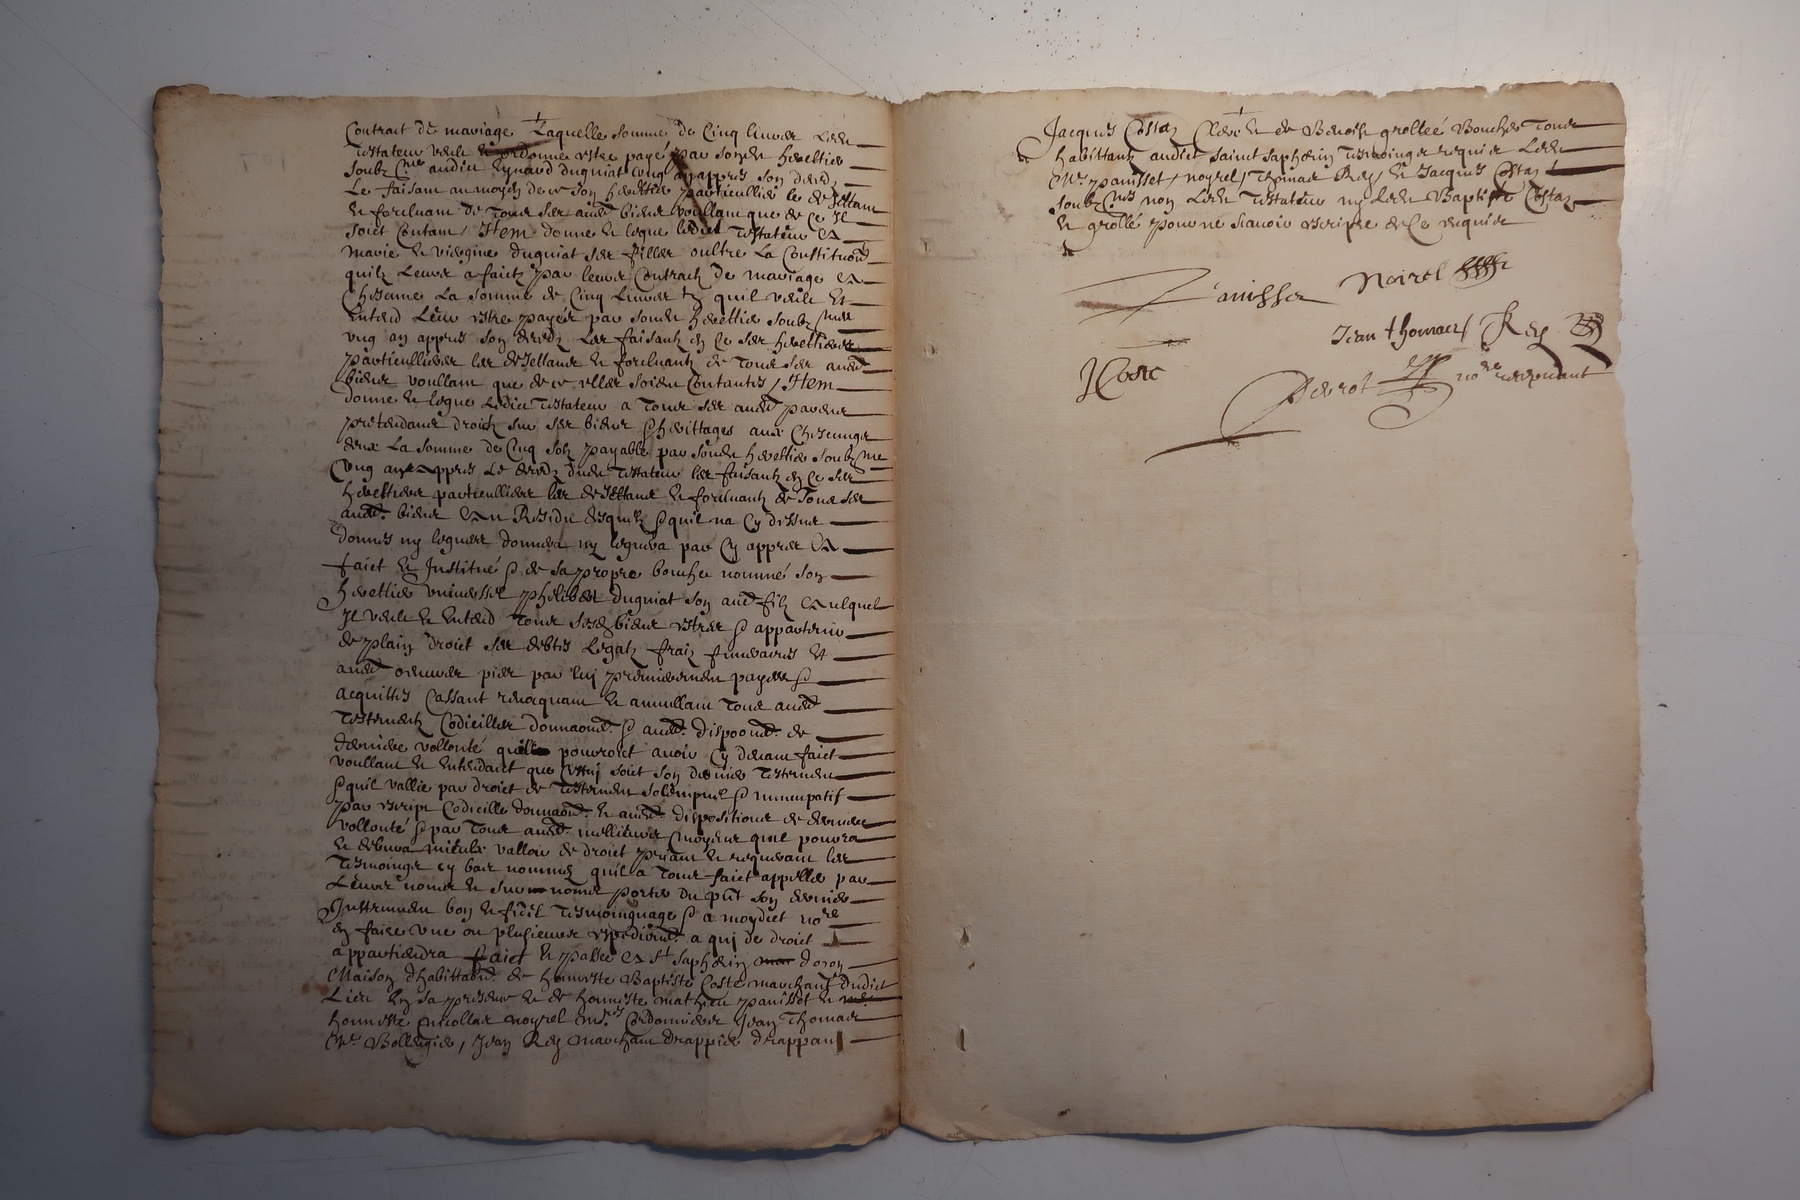 Contract de mariage Laquelle somme de Cinq livres Ledit
testateur veult et ordonne estre payé par sondit herettier
soubz nommé audict Eynard Duguiat ung an appres son deced
Le faisant au moyen de ce son herettier particullier le dejettant
et forcluant de tous ses aultres biens voullant que de ce Il
soict Contant / Item donne et legue ledict testateur ea
marie et virgine duguiat ses filles oultre La Constitution
quilz Leurs a faictz par leurs Contractz de mariage ea
Chescune La somme de Cinq Livres tz quil veult Et
Entend Leur estre payée par sondit herettier soubz nommé
ung an appres son decedz Les faisantz en ce ses herettieres
particullieres les dejettant et forcluantz de tous ses aultres
biens voullant que de ce elles soient Contantes / Item
donne et legue Ledict testateur a tous ses aultres parens
pretendans droictz sur ses biens & herittages aux Chescungs
deux La somme de Cinq solz payable par sondit herettier soubz nommé
ung an appres Le decedz dudit testateur les faisantz en ce ses
herettiers particulliers les dejettant et forcluantz de tous ses
aultres biens Ea Au Residu desquelz & quil na Cy dessus
donnes ny legués donnera ny leguera par Cy appres Ea
faict et Institué & de sa propre bouche nommé son
herettier universsel philibert duguiat son aultre filz Auquel
Il veult et Entend tous sesd biens estres & appartenir
de plain droict ses debtes Legatz fraiz funeraires Et
aultres oeuvres pies par luj premierement payées &
acquittés Cassant revocquant et annullant tous aultres
testementz Codicilles donnaons & aultres dispoons de
derniere vollonté quil pouroict avoir Cy devant faict
voullant et Entendant que cestuj soict son dernier testement
& quil vallie par droict de testement solempnel & nuncupatif
par escript Codicille donnaon et aultres dispositions de derniere
vollonté & par tous aultres meillieurs moyens quil poura
et debvra mieulx valloir de droict priant et requerant les
tesmoings cy bas nommez quil a tous faict appeller par
Leurs noms et surnoms porter du pnt son dernier
Instrument bon et fidel tesmoingnage & a moydict nore
en faire une ou plusieurs expedions a quj de droict
appartiendra faict et passée ea st saphorin doron
Maison dhabittaon de honneste Baptiste Costa marchant dudict
Lieu En sa presence et de honneste mathieu panisset et
honneste nicollas noyrel mres Cordonniers Jean Thomas
Mre Bollengier, Jean Rey marchant drappier drappant
Jacques Costaz Clerc et de Benoist grollée Boucher tous
habittantz audict saint saphorin tesmoings requis Lesd
Mre panisset / noyrel / thomas Rey / et Jacques Costaz
soubz nés non Ledit testateur ny Ledit Baptiste Costaz
et grollé pour ne scavoir escripre de Ce requis
Panisset Noirel
Jean thomas / Rey
J Coste
Perrot nore recepvant